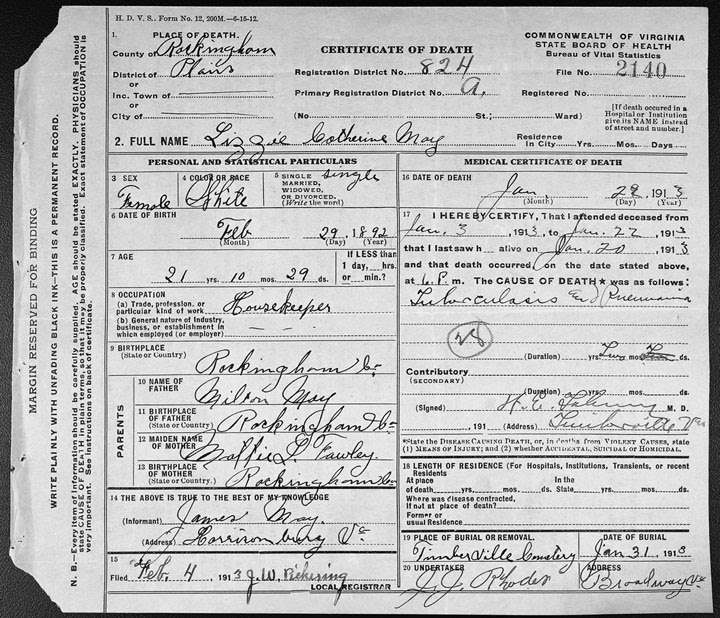 H. D. V. S., Form No. 12, 200M.—6-15-12.
1. PLACE OF DEATH.
County of Rockingham
District of Plains
or
Inc. Town of
or
City of
CERTIFICATE OF DEATH
Registration District No. 824
Primary Registration District No. A.
(No. St.; Ward)
COMMONWEALTH OF VIRGINIA
STATE BOARD OF HEALTH
Bureau of Vital Statistics
File No. 2140
Registered No.
[If death occured in a
Hospital or Institution
give its NAME instead
of street and number.]
2. FULL NAME Lizzie Catherine May
Residence
In City Yrs. Mos. Days
PERSONAL AND STATISTICAL PARTICULARS
3 SEX
Female
4 COLOR OR RACE
White
5 SINGLE
MARRIED,
WIDOWED,
OR DIVORCED.
(Write the word)
Single
6 DATE OF BIRTH
Feb 29 1892
(Month) (Day) (Year)
7 AGE
21 yrs. 10 mos. 29 ds.
If LESS than
1 day, hrs.
or min.?
8 OCCUPATION
(a) Trade, profession, or
particular kind of work Housekeeper
(b) General nature of Industry,
business, or establishment in
which employed (or employer)
9 BIRTHPLACE
(State or Country) Rockingham Co.
PARENTS
10 NAME OF
FATHER Milton May
11 BIRTHPLACE
OF FATHER
(State or Country) Rockingham Co.
12 MAIDEN NAME
OF MOTHER Mollie L. Fawley
13 BIRTHPLACE
OF MOTHER
(State or Country) Rockingham Co.
14 THE ABOVE IS TRUE TO THE BEST OF MY KNOWLEDGE
(Informant) James May
(Address) Harrisonburg Va
15
Filed Feb. 4 1913 J. W. Pickering
LOCAL REGISTRAR
MEDICAL CERTIFICATE OF DEATH
16 DATE OF DEATH
Jan. 1913
(Month) (Day) (Year)
17 I HEREBY CERTIFY, That I attended deceased from
Jan. 3 1913, to Jan. 22 1913
that I last saw h alive on Jan. 20 1913
and that death occurred on the date stated above,
at 6 P. m. The CAUSE OF DEATH was as follows:
Tuberculosis and Pneumonia
28
(Duration) yrs. mos. ds.
Contributory
(SECONDARY)
(Duration) yrs. mos. ds.
(Signed) M. D.
, 191 (Address) Timberville Va
*State the DISEASE CAUSING DEATH, or, in deaths from VIOLENT CAUSES, state
(1) MEANS OF INJURY; and (2) whether ACCIDENTAL, SUICIDAL OR HOMICIDAL.
18 LENGTH OF RESIDENCE (For Hospitals, Institutions, Transients, or recent
Residents
At place In the
of death yrs. mos. ds. State yrs. mos. ds.
Where was disease contracted,
If not at place of death?
Former or
usual Residence
19 PLACE OF BURIAL OR REMOVAL. DATE OF BURIAL
TimberVille Cemetery Jan 31 1913
20 UNDERTAKER ADDRESS
J. J. Rhodes Broadway Va
MARGIN RESERVED FOR BINDING
WRITE PLAINLY WITH UNFADING BLACK INK—THIS IS A PERMANENT RECORD.
N. B.—Every item of information should be carefully supplied. AGE should be stated EXACTLY. PHYSICIANS should
state CAUSE OF DEATH in plain terms, so that it may be properly classified. Exact statement of OCCUPATION is
very important. See instructions on back of certificate.